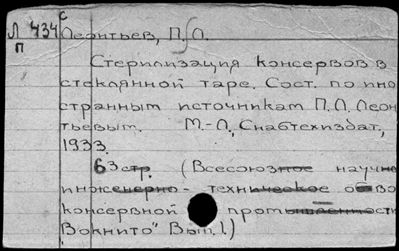 Л 434 с
п
Леонтьев, П. Л.
Стерилизация консервов в
стеклянной таре. Сост. по ино
странным источникам П. Л. Леон
тьевым. М.-Л., Снабтехиздат,
1933.
63 стр. (Всесоюзное научно
инженерно-техническое о-во
консервной промышленности
"Вокнито" Вып. 1)